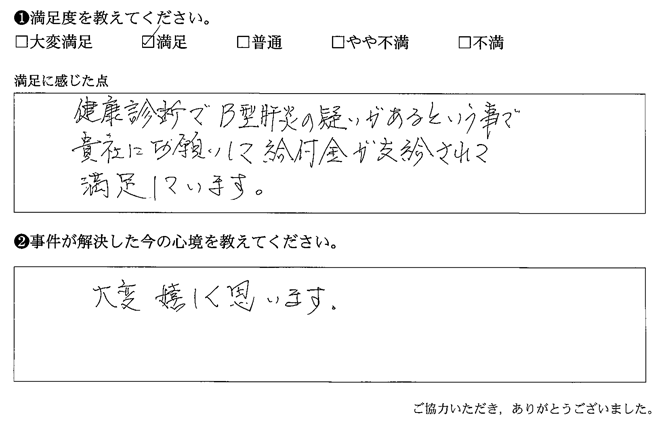 ❶満足度を教えてください。
□大変満足 ☑満足 □普通 □やや不満 □不満
満足に感じた点
健康診断でB型肝炎の疑いがあるという事で
貴社にお願いして給付金が支給されて
満足しています。
❷事件が解決した今の心境を教えてください。
大変嬉しく思います。
ご協力いただき，ありがとうございました。